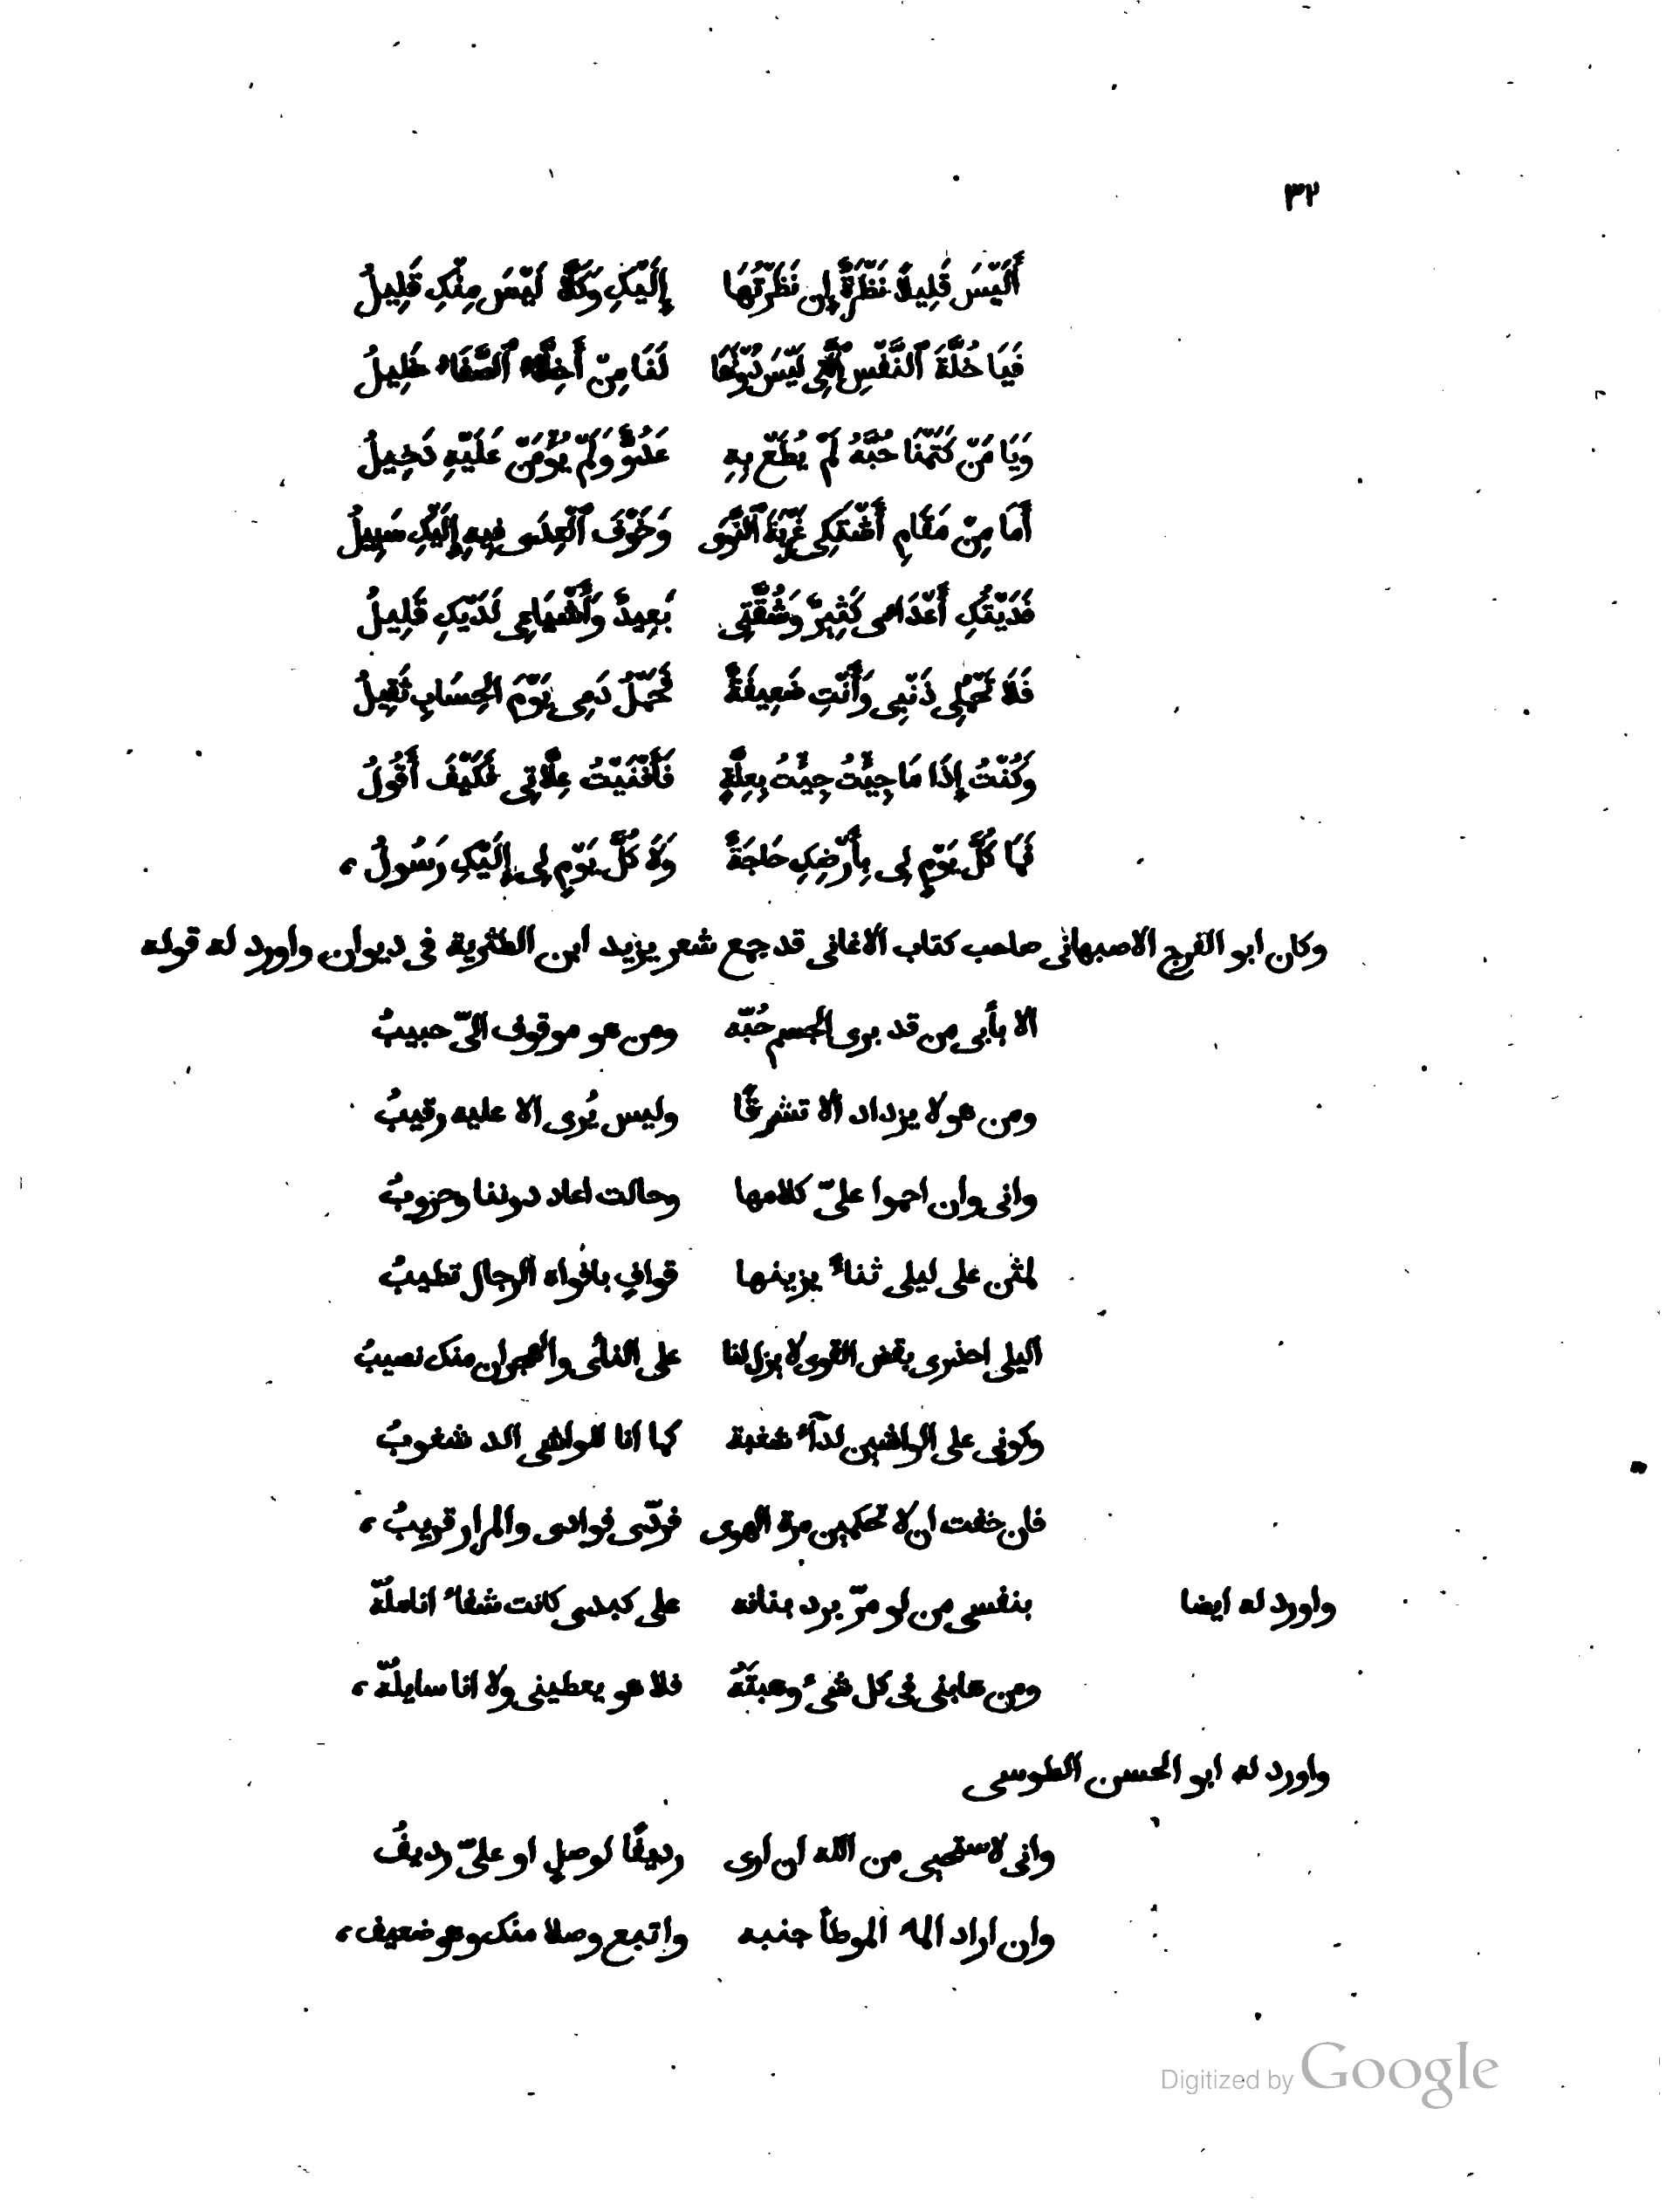 ٣٢
أَلَيْسَ قَلِيلًا نَظْرَةٌ إِن نَظَرْتُهَا إِلَيْكِ وَكَلَّا لَيْسَ مِنْكِ قَلِيلُ
فَيَا خُلَّةَ ٱلنَّفْسِ ٱلَّتِى لَيْسَ دُونَهَا لَنَا مِنْ أَخِلَّاء ٱلصَّفَاء خَلِيلُ
وَيَا مَنْ كَتَمْنَا حُبَّهُ لَمْ يُطَعْ بِهِ عَدُوٌّ وَلَمْ يُؤْمَنْ عَلَيْهِ دَخِيلُ
أَمَا مِنْ مَقَامٍ أَشْتَكِى غَرْبَةَ ٱلنَّوَى وَخَوْفَ ٱلْعِدَى فِيهِ إِلَيْكِ سَبِيلُ
فَدَيْتُكِ أَعْدَاءى كَثِيرٌ وَشُقَّتِى بَعِيدٌ وَأَشْيَاعِى لَدَيْكِ قَلِيلُ
فَلَا تَحْمِلِى ذَنْبِى وَأَنْتِ ضَعِيفَةٌ فَحَمْلُ دَمِى يَوْمَ الحِسَابِ ثَقِيلُ
وَكُنْتُ إِذَا مَا جِيْتُ جِيْتُ بِعِلَّةٍ فَأَفْنَيْتُ عِلَّاتِى فَكَيْفَ أَقُولُ
فَمَا كُلُّ يَوْمٍ لِى بِأَرْضِكِ حَاجَةٌ وَلَا كُلُّ يَوْمٍ لِى إِلَيْكِ رَسُولُ ،
وكان ابو الفرج الاصبهانى صاحب كتاب الاغانى قد جمع شعر يزيد ابن الطثرية فى ديوان واورد له قوله
الا بأبى من قد برى الجسم حُبّه ومن هو موقوف الىّ حبيبُ
ومن هو لا يزداد الا تشرقًا وليس يُرى الا عليه رقيبُ
وانى وان احموا علىّ كلامها وحالت اعاد دوننا وحزوبُ
لمثن على ليلى ثناءً يزينها قوافٍ بافواه الرجال تطيبُ
اليلى احذرى بقض القوى لا يزل لنا على النأى والهجران منك نصيبُ
وكونى على الواشين لدآء شغبة كما انا للواشى الد شغوبُ
فان خفت ان لا تحكمين مرة الهوى فردّى فوادى والمرار قريبُ ،
واورد له ايضا بنفسى من لو مرّ برد بنانه على كبدى كانت شفاء اناملُهْ
ومن هابنى فى كل شىء وهبتُهُ فلا هو يعطينى ولا انا سايلُهْ ،
واورد له ابو الحسن الطوسى
وانى لاستحيى من الله ان ارى رديفًا لوصلٍ او علىّ رديفُ
وان اراد الماء الموطأ جنبه واتبع وصلا منك وهو ضعيف ،
Digitized by Google